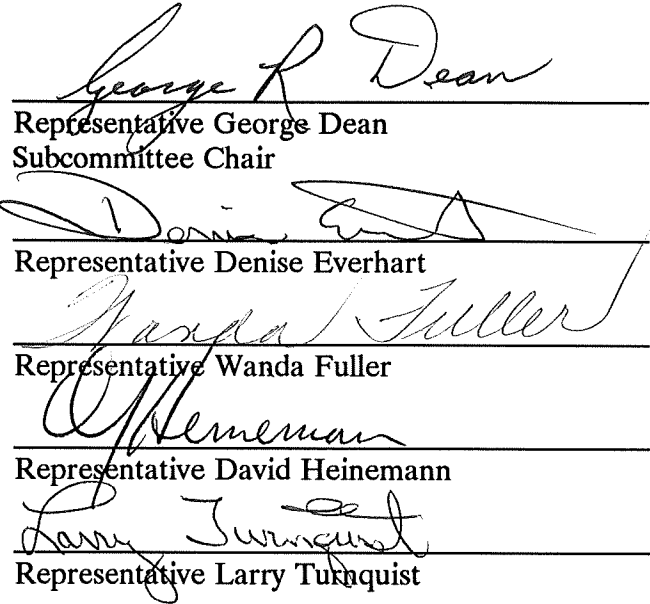 George R Dean
Representative George Dean
Subcommittee Chair
Denise Everhart
Representative Denise Everhart
Wanda Fuller
Representative Wanda Fuller
D Heinemann
Representative David Heinemann
Larry Turnquist
Representative Larry Turnquist